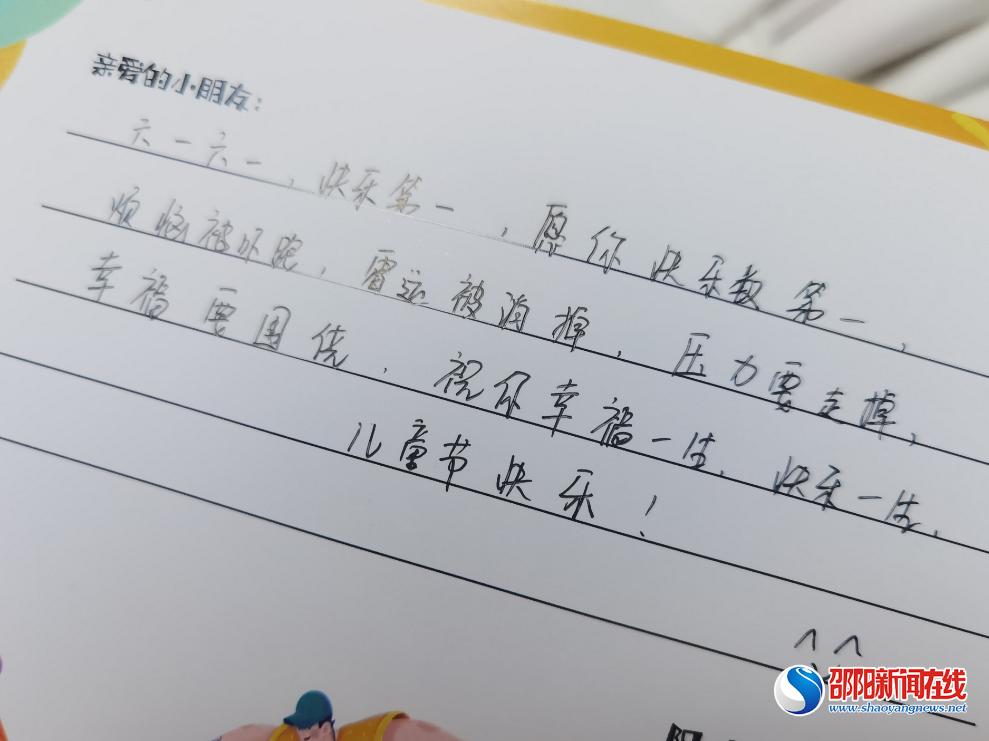 亲爱的小朋友：
六一六一，快乐第一，愿你快乐数第一，
烦恼被吓跑，霉运被消掉，压力要走掉，
幸福要围绕，祝你幸福一生，快乐一生，
儿童节快乐！
邵阳新闻在线
www.shaoyangnews.net